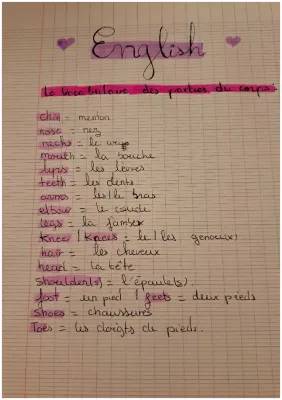 English
Le vocabulaire des parties du corps:
chin = menton
nose = nez
necks = le
mouth = la bouche
lips = les lèvres
teeth = les dents
arms = les/le bras
elbow = le coude
legs = la jambes
Knee / Knees = le/les genoux
hair = les cheveux
head = la tête
Shoulder(s) = l'épaule(s)
foot = un pied / feets = deux pieds
Shoes = chaussures
Toes = les doigts de pieds.